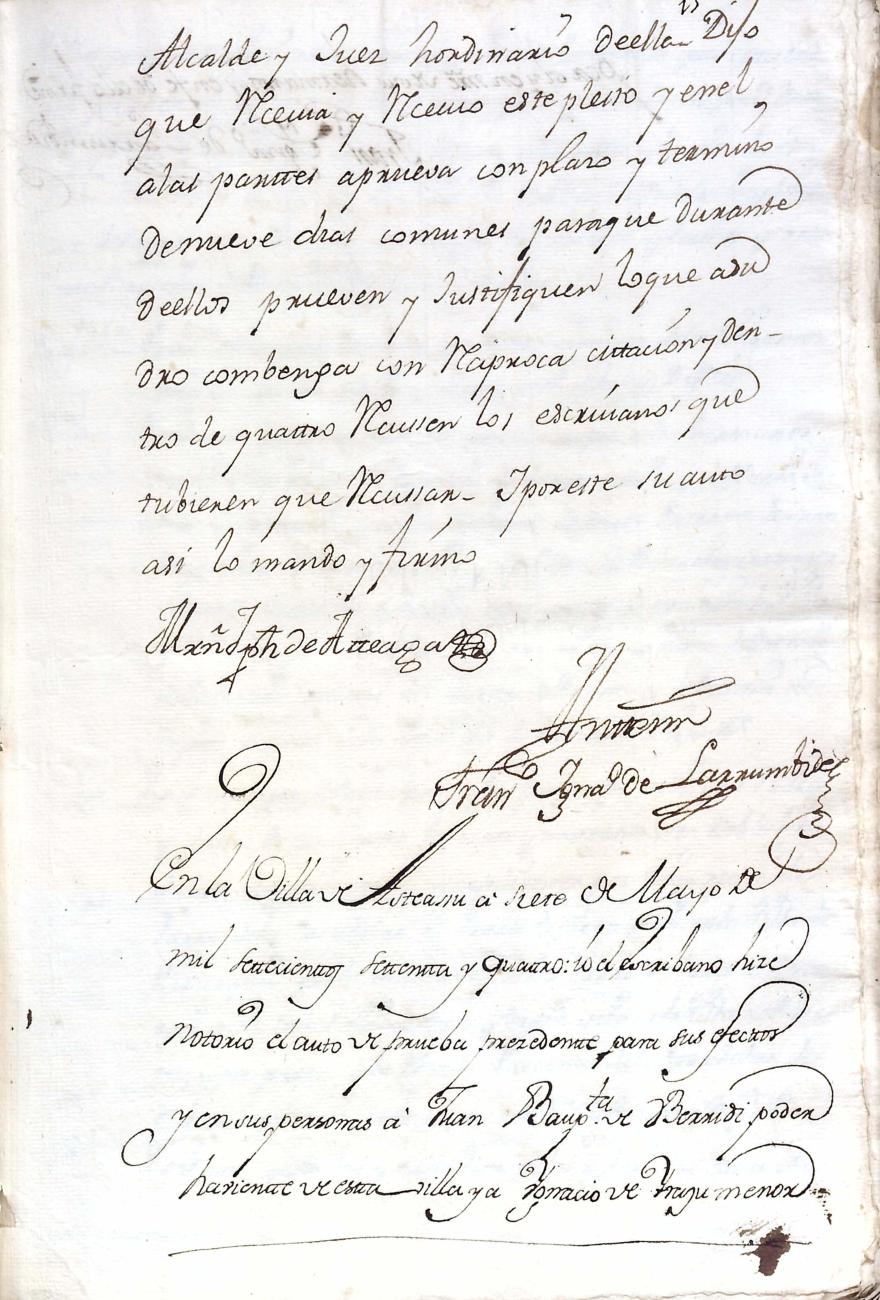 Alcalde y Juez hordinario deella Dijo
que Recivia y Recivio este pleito y enel
alas parttes aprueva con plazo y termino
denueve dias comunes paraque durante
deellos prueven y Justifiquen loque asu
dro combenga con Reciproca cittacion y den-
tro de quattro Recussen los escrivanos que
tubieren que Recussar- Iporeste su auto
asi lo mando y firmo
Mrñ Jph de Arteaga
Antemi
Fran Ignaº de Larrumbide
En la Villa de Asteasu a siete de Mayo de
mil settecienttos settentta y quattro: Yo el escribano hize
notorio el auto de prueba prezedente para sus efecttos
y en sus personas a Juan Baupta de Berridi poder
haviente de estta villa y a Ygnacio de Yrazu menor